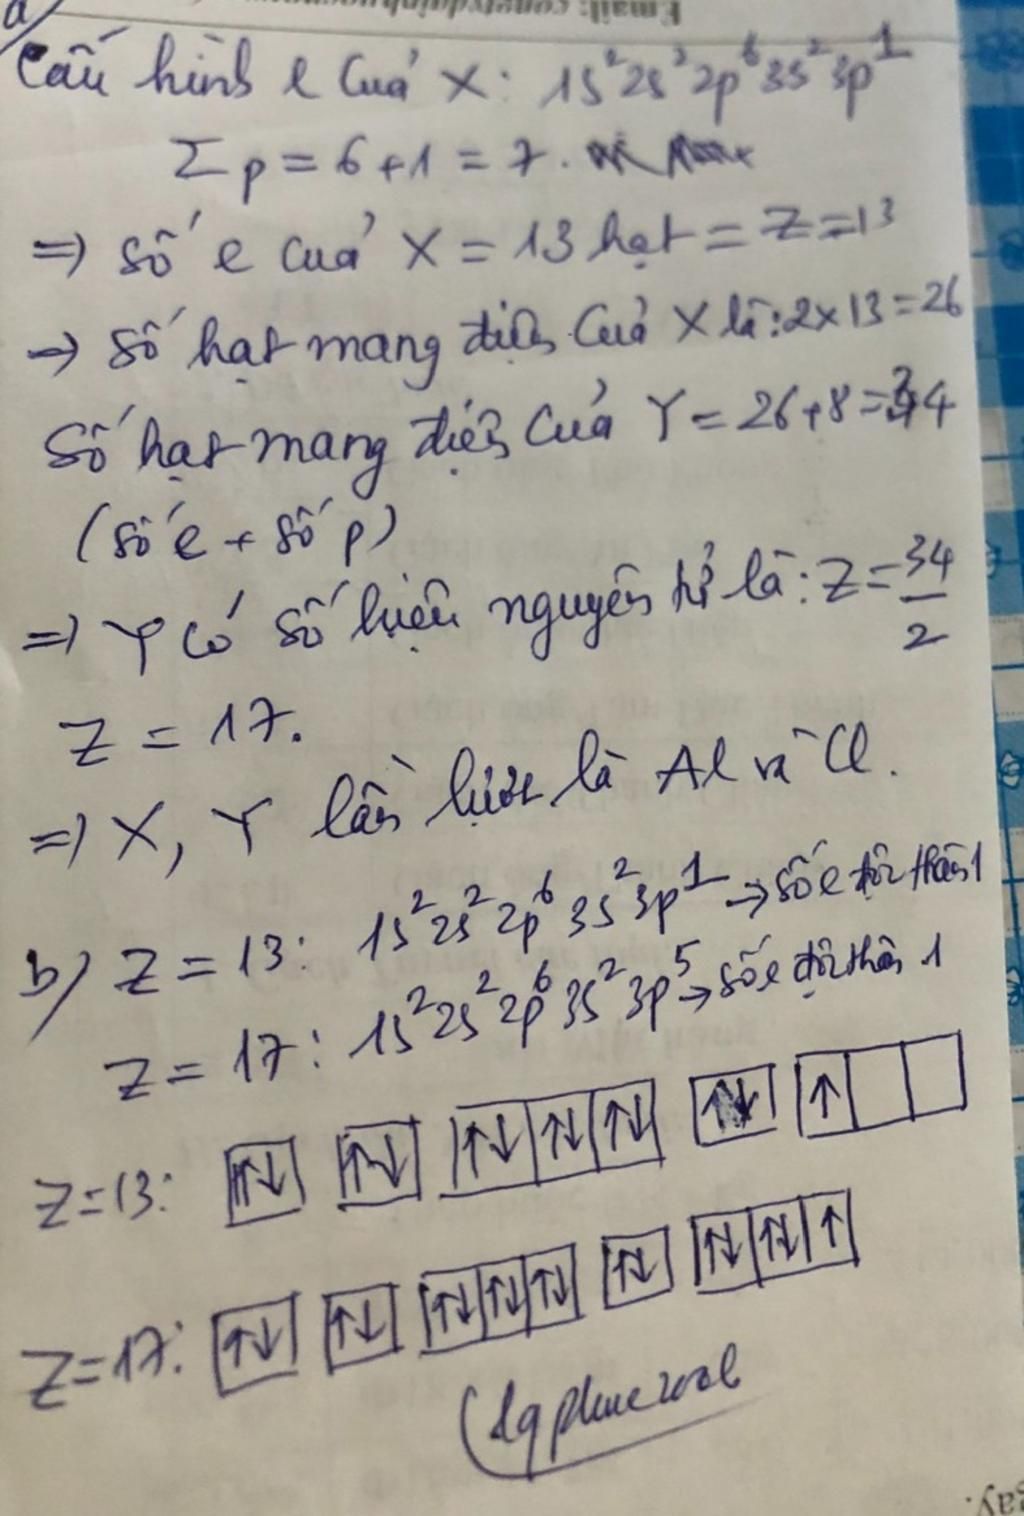 Email:
a/
Cấu hình e của X: 1s²2s²2p⁶3s²3p¹
Σp = 6+1 = 7.
=> số e của X = 13 hạt = Z = 13
→ số hạt mang điện của X là: 2x13 = 26
Số hạt mang điện của Y = 26+8 = 34
(số e + số p)
=> Y có số hiệu nguyên tử là: Z = 34/2
Z = 17.
=> X, Y lần lượt là Al và Cl.
b/ Z = 13: 1s²2s²2p⁶3s²3p¹ → số e độc thân 1
Z = 17: 1s²2s²2p⁶3s²3p⁵ → số e độc thân 1
Z=13: ↑↓ ↑↓ ↑↓ ↑↓ ↑↓ ↑↓ ↑
Z=17: ↑↓ ↑↓ ↑↓ ↑↓ ↑↓ ↑↓ ↑↓ ↑↓ ↑